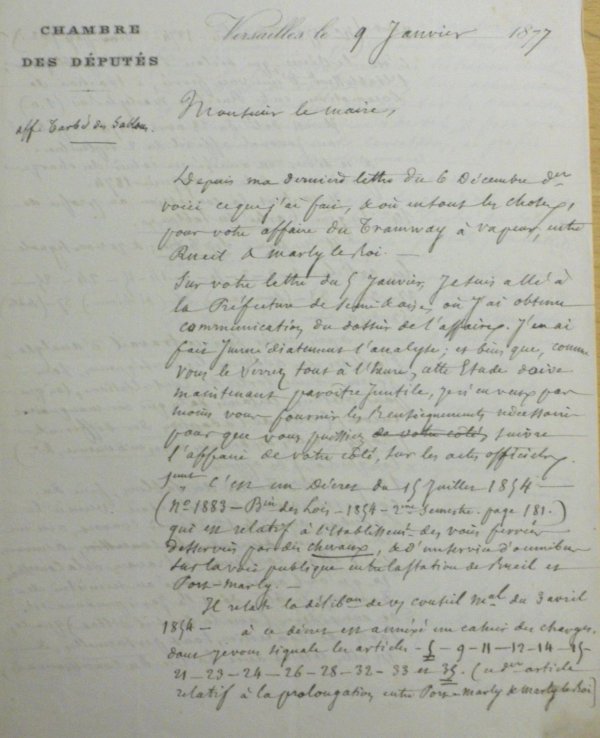 CHAMBRE
DES DÉPUTÉS
Versailles le 9 Janvier 1877
Monsieur le maire,
aff. Tarbé des Sablons.
Depuis ma dernière lettre du 6 Décembre der
voici ce que j'ai fait, & où en sont les choses,
pour votre affaire du Tramway à vapeur, entre
Rueil & Marly le Roi. —
Sur votre lettre du 5 Janvier, Je suis allé à
la Préfecture de Seine & Oise, où J'ai obtenu
communication du dossier de l'affaire. J'en ai
fait Immédiatement l'analyse; et bien que, comme
vous le verrez tout à l'heure, cette Etude doive
maintenant paroître Inutile, je n'en veux pas
moins vous fournir les Renseignements nécessaires
pour que vous puissiez de votre côté suivre
l'affaire de votre côté, sur les actes officiels.
C'est un Décret du 15 Juillet 1854 —
(No 1883 — Bin des Lois — 1854 — 2me Semestre. page 181.)
qui est relatif à l'Etablissemt des voies ferrées
desservies par des chevaux, & d'un service d'omnibus
sur la voie publique entre la station de Rueil et
Port-Marly. —
Il relate la délibon de vo conseil mal du 3 avril
1854 — à ce décret est annexé un cahier des charges,
dont je vous signale les articles — 5 — 9 — 11 — 12 — 14 — 15 —
21 — 23 — 24 — 26 — 28 — 32 — 33 et 35. (ce der article
relatif à la prolongation entre Port-Marly & Marly le Roi)